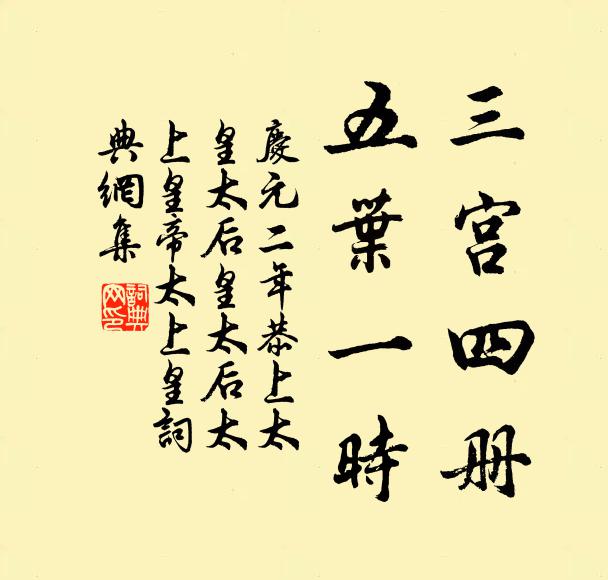 三宮四册
五葉一時
慶元二年恭上太
皇太后皇太后太
上皇帝太上皇詞
典網集
詞典網印